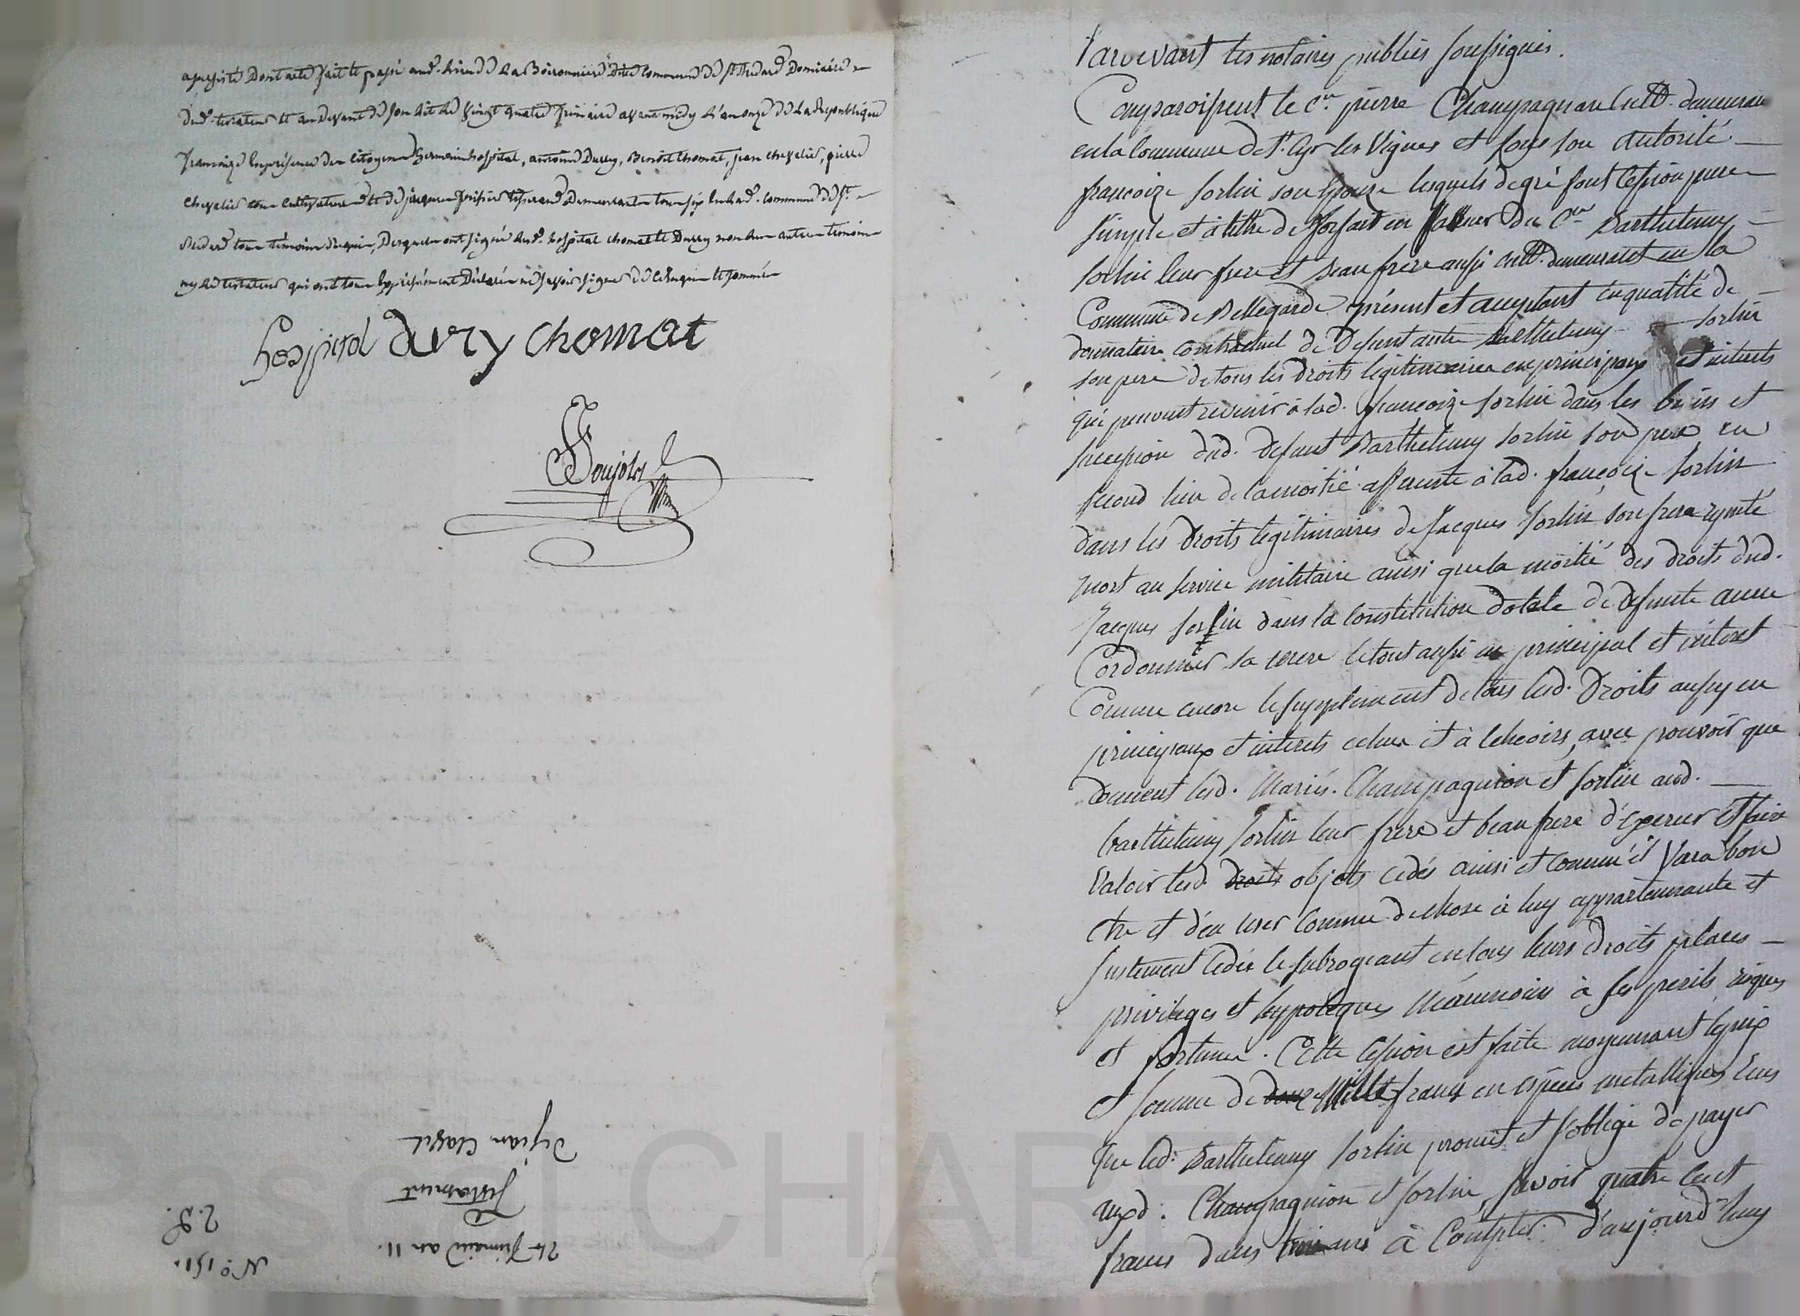 apresté Dont acte fait et passé aud. lieu de La Boironnière Dite commune de St Medard Domicile
dud. testateur et au devant de son lit le Vingt quatre frimaire avant midy L'an onze de La Republique
française En présence des citoyens Germain hospital, antoine Durry, Benoit Chomat, jean chevalier, pierre
chevalier tous cultivateurs et de jacques tisserand Demeurants tous six en lad. commune de St.
Medard tous témoins requis, Desquels ont signé led. hospital chomat et Durry non les autres temoins
ny led testateur qui ont tous Expressément Déclaré ne savoir signer de ce Enquis et sommés
hospital durry chomat
Soujolos
De jean Clavel
Testament
24 frimaire an 11.
2.8.
N.º 151.
Pardevant les notaires publics soussignés.
Comparoissent le Cen. pierre Champagnon Cultr. demeurant
en la Commune de St. Cyr les Vignes et sous son autorité
françoize Sorlin son Epouze lesquels de gré font Cession pure
simple et à titre de forfait en faveur du Cen Barthelemy
Sorlin leur frere et beau frere aussi cultr. demeurant en la
Commune de Bellegarde présent et acceptant En qualité de
donnataire contractuel de Defunt autre Barthelemy Sorlin
son pere de tous les Droits légitimaires en principaux et intérêts
qui peuvent revenir à lad. françoize Sorlin dans les biens et
succession dud. Defunt Barthelemy Sorlin son pere en
second lieu de la moitié afferente à lad. françoize Sorlin
dans les Droits légitimaires de Jacques Sorlin son frere réputé
mort au service militaire ainsi que la moitié des droits dud.
Jacques Sorlin dans la Constitution dotale de Defunte anne
Cordonnier sa mere le tout aussi en principal et intérêt
Comme encore le supplement de tous lesd. Droits aussy en
principaux et interets echus et à Echeoirs, avec pouvoir que
donnent lesd. Mariés. Champagnon et Sorlin aud.
barthelemy Sorlin leur frere et beau frere d'Exercer Et faire
Valoir lesd. droits objets cédés ainsi et comme il Verra bon
etre et d'en user comme de chose à luy appartenante et
Justement Cédée le subrogeant en tous leurs droits places
privileges et hypoteques Néanmoins à ses perils risques
et fortune. Cette Cession est faite moyennant le prix
et somme de deux Mille francs en espèces metalliques
que led. Barthelemy Sorlin promet et s'oblige de payer
auxd. Champagnon et Sorlin, savoir quatre Cent
francs dans ans à Compter d'aujourd'huy